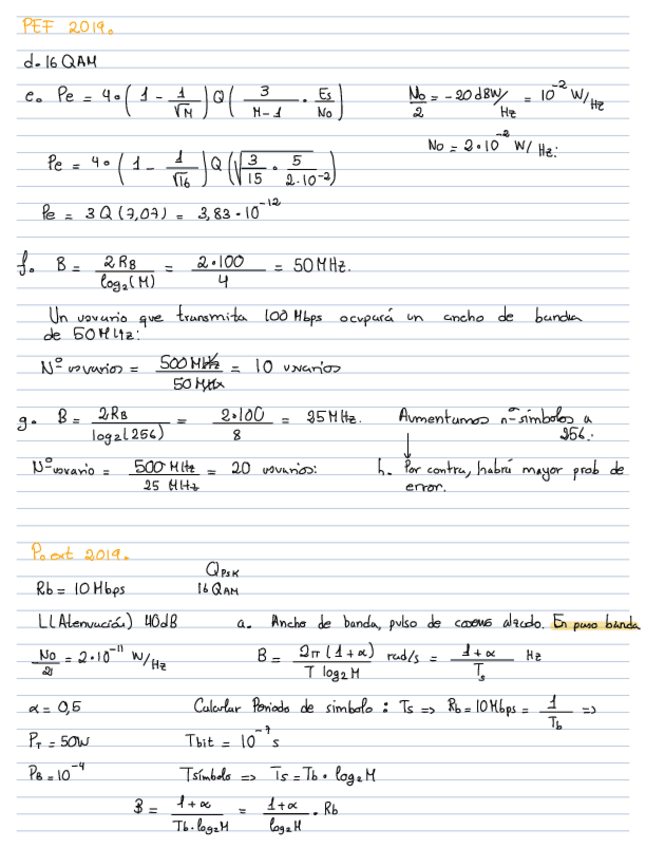 PEF 2019.
d. 16 QAM
e. Pe = 4 · (1 - 1/√M) Q (3/(M-1) · Es/No)
No/2 = -20 dBW/Hz = 10^-2 W/Hz
No = 2·10^-2 W/Hz.
Pe = 4 · (1 - 1/√16) Q (√(3/15 · 5/(2·10^-2)))
Pe = 3 Q (7,07) = 3,83 · 10^-12
f. B = 2RB/log2(M) = 2·100/4 = 50 MHz.
Un usuario que transmita 100 Mbps ocupará un ancho de banda
de 50 MHz:
Nº usuarios = 500 MHz/50 MHz = 10 usuarios
g. B = 2RB/log2(256) = 2·100/8 = 25 MHz. Aumentamos nº símbolos a
256.
↓
Nº usuario = 500 MHz/25 MHz = 20 usuarios: h. Por contra, habrá mayor prob de
error.
P. ext 2019.
QPSK
Rb = 10 Mbps 16 QAM
L (Atenuación) 40dB a. Ancho de banda, pulso de coseno alzado. En paso banda
No/2 = 2·10^-11 W/Hz B = 2π(1+α)/(T log2M) rad/s = (1+α)/Ts Hz
α = 0,5 Calcular Periodo de simbolo : Ts => Rb = 10 Mbps = 1/Tb =>
PT = 50W Tbit = 10^-7 s
PB = 10^-4 Tsímbolo => Ts = Tb · log2M
B = (1+α)/(Tb·log2M) = (1+α)/log2M · Rb